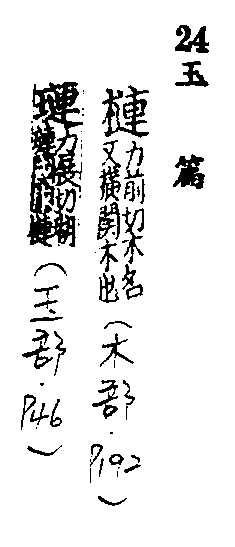 24 玉篇
槤 力前切木名又橫關木也（木部．P192）
璉 力展切瑚（玉部．P46）